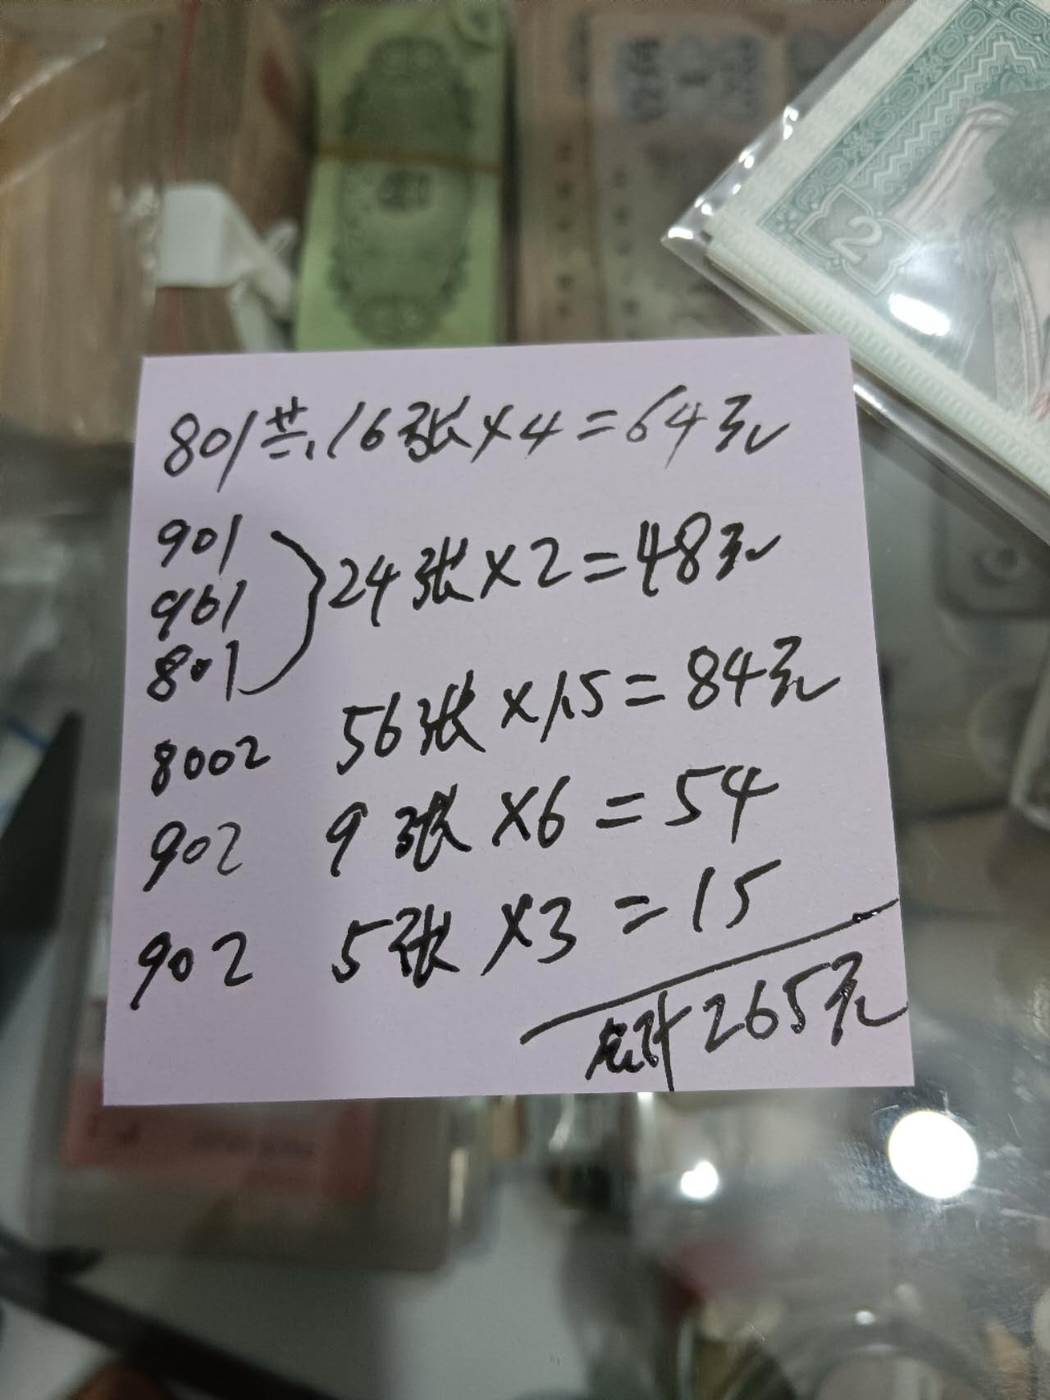 801共16张×4=64元
901
961
801
24张×2=48元
8002 56张×1.5=84元
902 9张×6=54
902 5张×3=15
总计265元
2